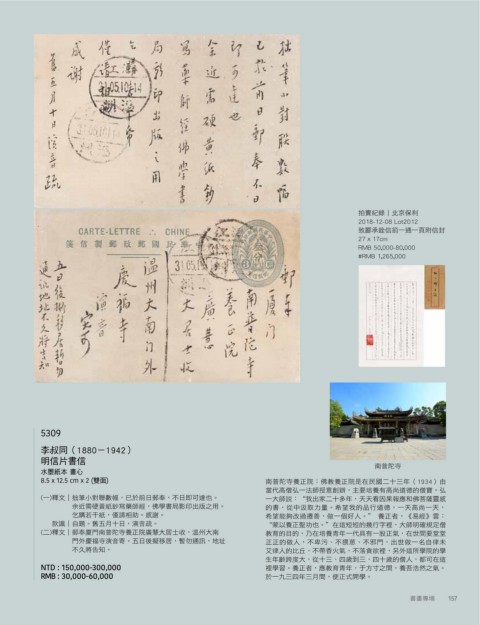 拙筆小對聯數幅
已於前日郵奉不日
即可達也
余近需硬黃紙鈔
寫藥師經佛學書
局影印出版之用
乞
僅
感謝
舊五月十日演音疏
CARTE-LETTRE CHINE
中華民國郵政郵製信箋
郵奉
廈門
南普陀寺
養正院
廣義
大居士收
溫州大南門外
慶福寺
演音
五日後擬移居暫勿
通訊地址不久將告知
拍賣紀錄｜北京保利
2018-12-08 Lot2012
致郵承銓信前一通一頁附信封
27 x 17cm
RMB 50,000-80,000
#RMB 1,265,000
南普陀寺
5309
李叔同（1880－1942）
明信片書信
水墨紙本 畫心
8.5 x 12.5 cm x 2 (雙面)
(一)釋文｜拙筆小對聯數幅，已於前日郵奉，不日即可達也。
余近需硬黃紙鈔寫藥師經，佛學書局影印出版之用。
乞購若干紙，僅請相助，感謝。
款識｜自題，舊五月十日，演音疏。
(二)釋文｜郵奉廈門南普陀寺養正院廣義大居士收，溫州大南
門外慶福寺演音寄。五日後擬移居，暫勿通訊，地址
不久將告知。
NTD : 150,000-300,000
RMB : 30,000-60,000
南普陀寺養正院：佛教養正院是在民國二十三年（1934）由
當代高僧弘一法師提意創辦，主要培養有高尚道德的僧寶。弘
一大師說：“我出家二十多年，天天看因果報應和佛菩薩靈感
的書，從中汲取力量。希望我的品行道德，一天高尚一天，
希望能夠改過遷善，做一個好人。” 養正者，《易經》雲：
“蒙以養正聖功也。” 在這短短的幾行字裡，大師明確規定僧
教育的目的，乃在培養青年一代具有一般正氣，在世間要堂堂
正正的做人，不卑污、不猥褻、不邪門，出世做一名自律來
又律人的比丘，不帶香火氣、不落貪欲裡。另外這所學院的學
生年齡跨度大，從十三、四歲到三、四十歲的僧人，都可在這
裡學習。養正者，應教育青年，于方寸之間，養吾浩然之氣。
於一九三四年三月間，便正式開學。
書畫專場 157